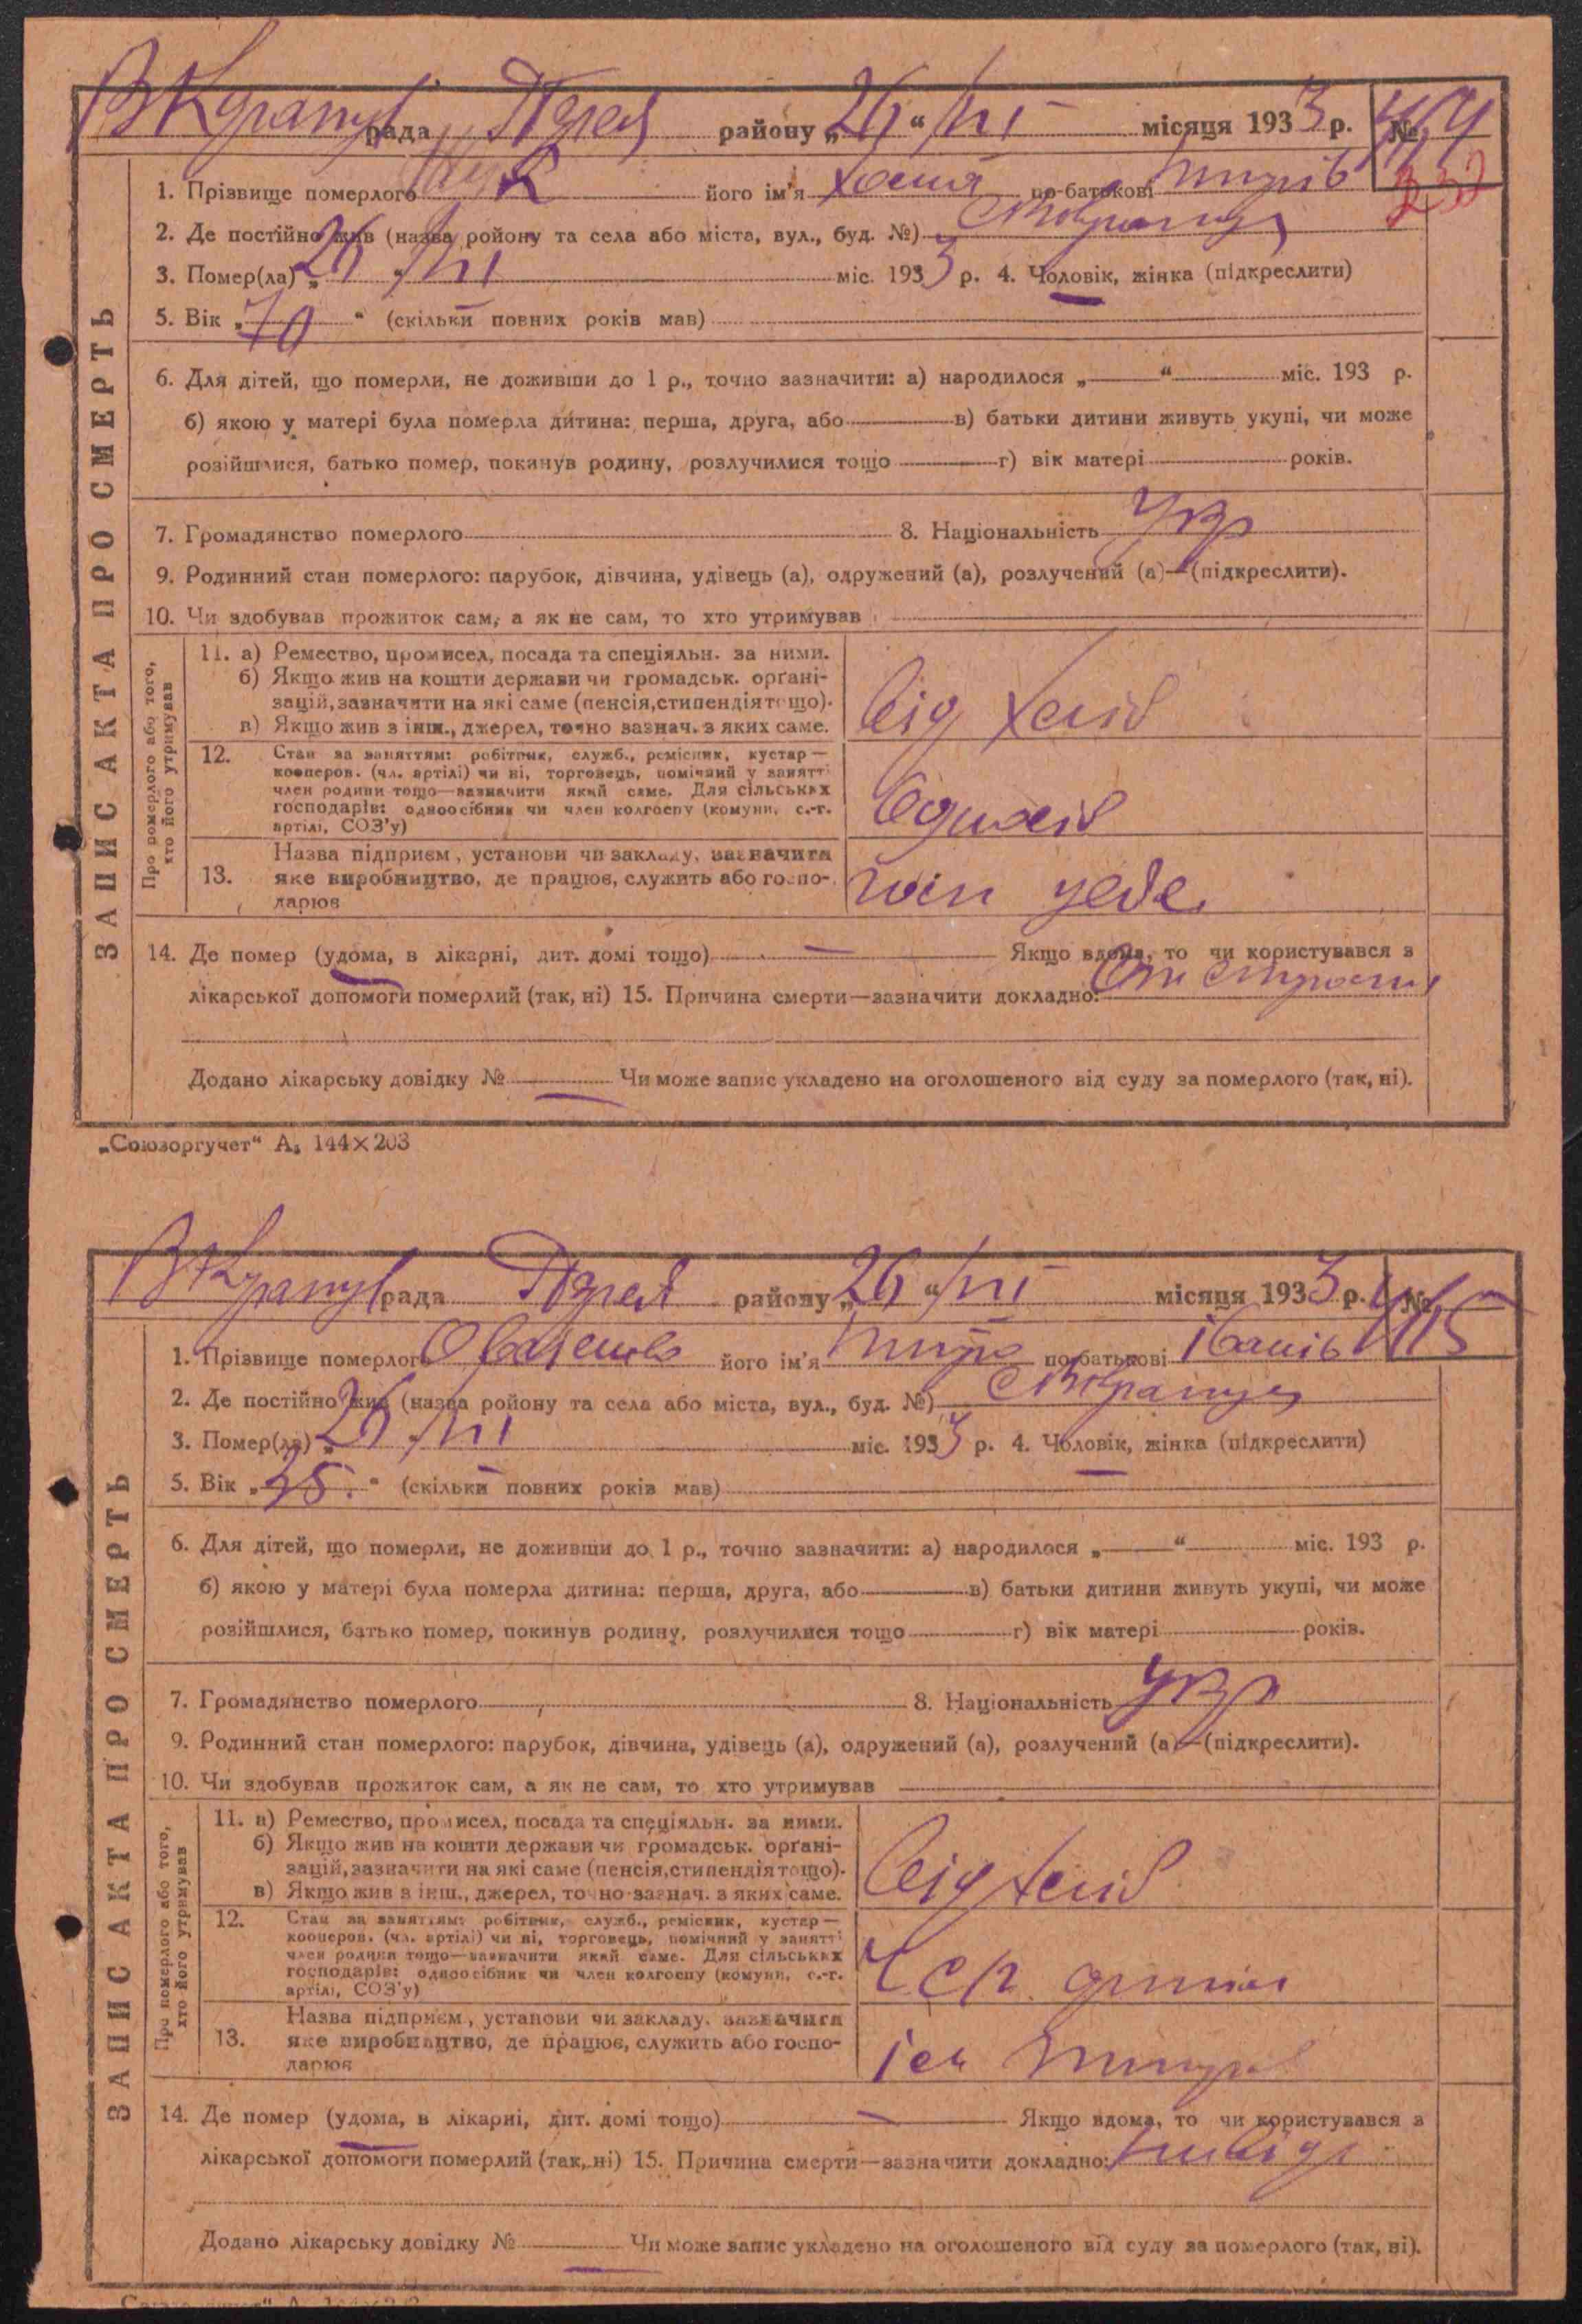 рада району „26“ ІІІ місяця 1933 р. №
1. Прізвище померлого його ім'я Хома по-батькові
2. Де постійно жив (назва ройону та села або міста, вул., буд. №)
3. Помер(ла) „26“ ІІІ міс. 1933 р. 4. Чоловік, жінка (підкреслити)
5. Вік „70“ (скільки повних років мав)
6. Для дітей, що померли, не доживши до 1 р., точно зазначити: а) народилося „ “ міс. 193 р.
б) якою у матері була померла дитина: перша, друга, або в) батьки дитини живуть укупі, чи може
розійшлися, батько помер, покинув родину, розлучилися тощо г) вік матері років.
7. Громадянство померлого 8. Національність Укр
9. Родинний стан померлого: парубок, дівчина, удівець (а), одружений (а), розлучений (а)—(підкреслити).
10. Чи здобував прожиток сам, а як не сам, то хто утримував
ЗАПИС АКТА ПРО СМЕРТЬ
Про померлого або того,
хто його утримував
11. а) Ремество, промисел, посада та спеціяльн. за ними.
б) Якщо жив на кошти держави чи громадськ. орґані-
зацій, зазначити на які саме (пенсія, стипендія тощо).
в) Якщо жив з інш., джерел, точно зазнач. з яких саме.
12. Стан за заняттям: робітник, служб., ремісник, кустар—
кооперов. (чл. артілі) чи ні, торговець, помічний у занятті
член родини тощо—зазначити який саме. Для сільських
господарів: одноосібник чи член колгоспу (комуни, с.-г.
артілі, СОЗ'у)
13. Назва підприєм., установи чи закладу, зазначити
яке виробництво, де працює, служить або госпо-
дарює
14. Де помер (удома, в лікарні, дит. домі тощо) — Якщо вдома, то чи користувався з
лікарської допомоги померлий (так, ні) 15. Причина смерти—зазначити докладно:
Додано лікарську довідку № Чи може запис укладено на оголошеного від суду за померлого (так, ні).
„Союзоргучет“ А₅ 144×203
рада району „26“ ІІІ місяця 1933 р. № 415
1. Прізвище померлого його ім'я по-батькові Іванів
2. Де постійно жив (назва ройону та села або міста, вул., буд. №)
3. Помер(ла) „26“ ІІІ міс. 1933 р. 4. Чоловік, жінка (підкреслити)
5. Вік „ “ (скільки повних років мав)
6. Для дітей, що померли, не доживши до 1 р., точно зазначити: а) народилося „ “ міс. 193 р.
б) якою у матері була померла дитина: перша, друга, або в) батьки дитини живуть укупі, чи може
розійшлися, батько помер, покинув родину, розлучилися тощо г) вік матері років.
7. Громадянство померлого 8. Національність Укр
9. Родинний стан померлого: парубок, дівчина, удівець (а), одружений (а), розлучений (а)—(підкреслити).
10. Чи здобував прожиток сам, а як не сам, то хто утримував
ЗАПИС АКТА ПРО СМЕРТЬ
Про померлого або того,
хто його утримував
11. а) Ремество, промисел, посада та спеціяльн. за ними.
б) Якщо жив на кошти держави чи громадськ. орґані-
зацій, зазначити на які саме (пенсія, стипендія тощо).
в) Якщо жив з інш., джерел, точно зазнач. з яких саме.
12. Стан за заняттям: робітник, служб., ремісник, кустар—
кооперов. (чл. артілі) чи ні, торговець, помічний у занятті
член родини тощо—зазначити який саме. Для сільських
господарів: одноосібник чи член колгоспу (комуни, с.-г.
артілі, СОЗ'у)
13. Назва підприєм., установи чи закладу, зазначити
яке виробництво, де працює, служить або госпо-
дарює
14. Де помер (удома, в лікарні, дит. домі тощо) — Якщо вдома, то чи користувався з
лікарської допомоги померлий (так, ні) 15. Причина смерти—зазначити докладно:
Додано лікарську довідку № Чи може запис укладено на оголошеного від суду за померлого (так, ні).